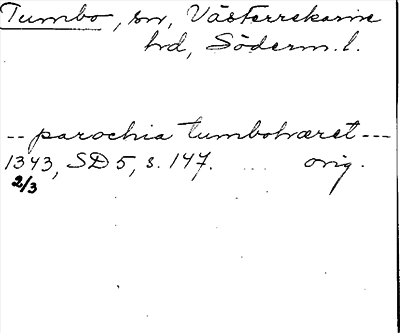 Tumbo, sn, Västerrekarne
hd, Söderm. l.
-- parochia tumbohæret ---
1343, SD 5, s. 147. ... orig.
2/3